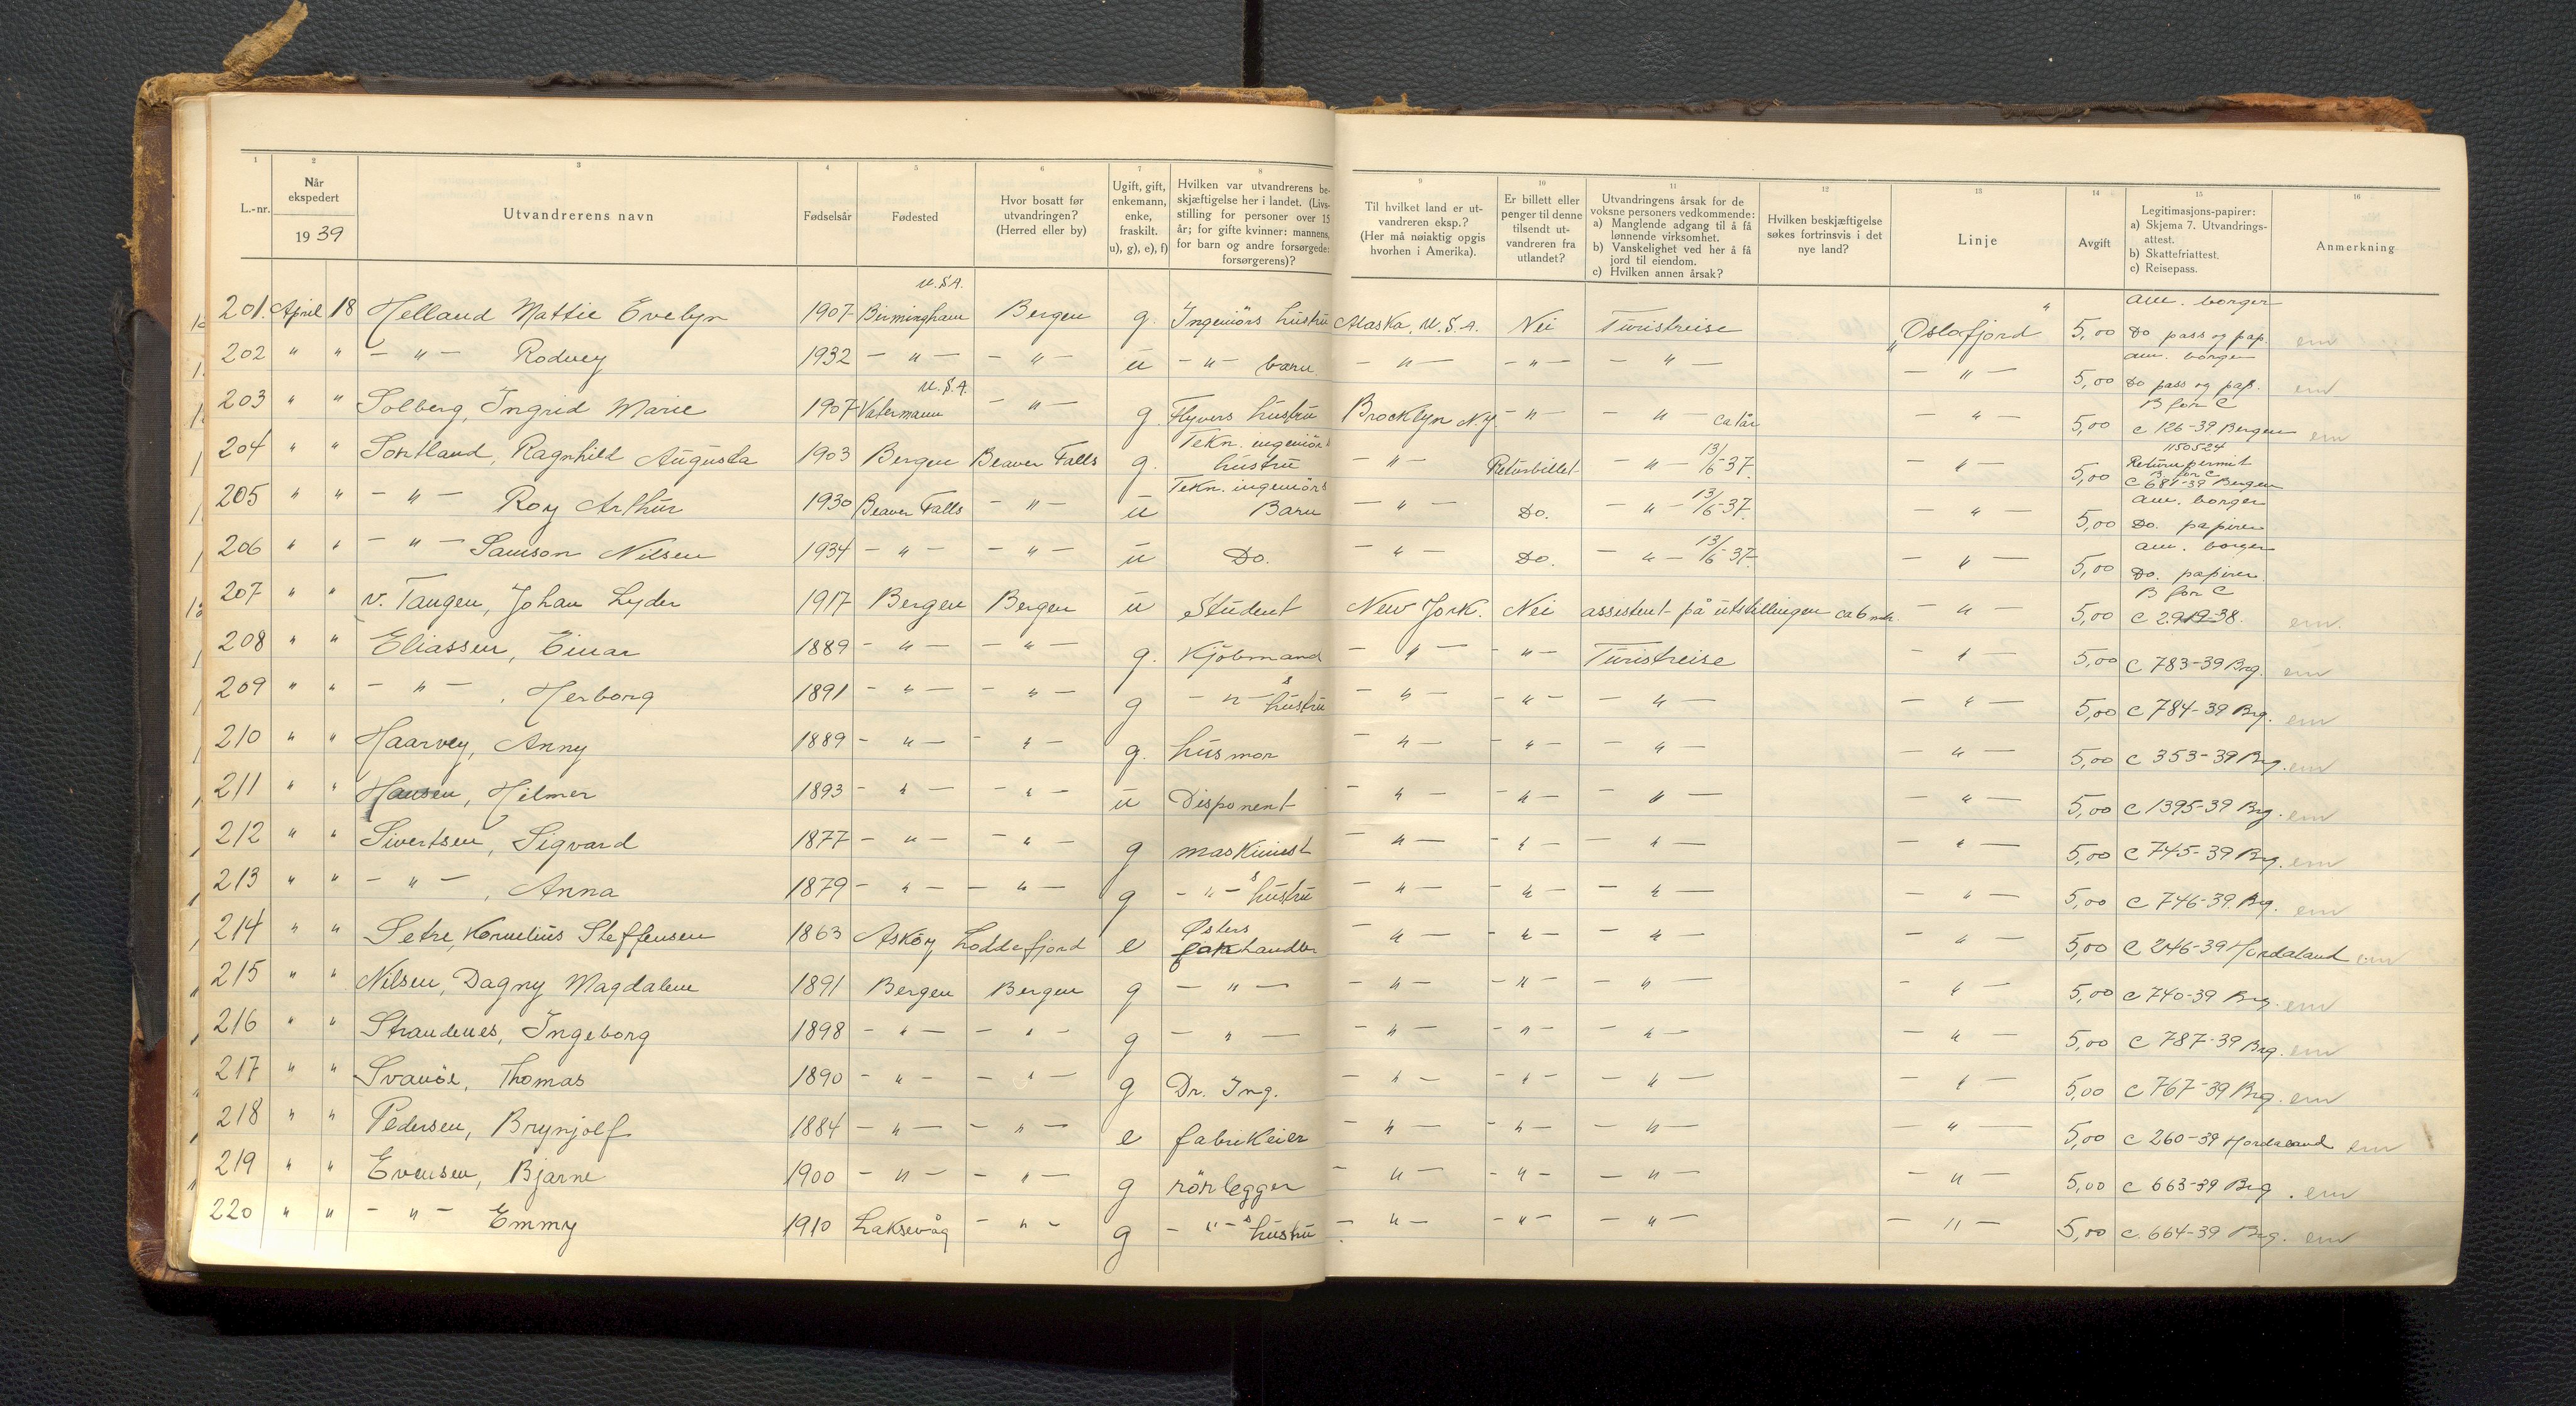 1 2 3 4 5 6 7 8 9 10 11 12 13 14 15 16
L.-nr. | Når ekspedert 1939 | Utvandrerens navn | Fødselsår | Fødested | Hvor bosatt før utvandringen? (Herred eller by) | Ugift, gift, enkemann, enke, fraskilt. u), g), e), f) | Hvilken var utvandrerens beskjæftigelse her i landet. (Livsstilling for personer over 15 år; for gifte kvinner: mannens, for barn og andre forsørgede: forsørgerens)? | Til hvilket land er utvandreren eksp.? (Her må nøiaktig opgis hvorhen i Amerika). | Er billett eller penger til denne tilsendt utvandreren fra utlandet? | Utvandringens årsak for de voksne personers vedkommende: a) Manglende adgang til å få lønnende virksomhet. b) Vanskelighet ved her å få jord til eiendom. c) Hvilken annen årsak? | Hvilken beskjæftigelse søkes fortrinsvis i det nye land? | Linje | Avgift | Legitimasjons-papirer: a) Skjema 7. Utvandringsattest. b) Skattefriattest. c) Reisepass. | Anmerkning
201. April 18 Helland Mattie Evelyn 1907 Birmingham U.S.A. Bergen g. Ingeniörs hustru Alaska, U.S.A. Nei Turistreise "Oslofjord" 5,00 am. borger Do pass og pap. em
202 " " - " - Rodney 1932 - " - - " - u - " - barn. - " - - " - - " - - " - 5,00 am. borger Do pass og pap. em
203 " " Solberg, Ingrid Marie 1907 Vatermann U.S.A. - " - g. Flyvers hustru Brocklyn N.Y. - " - - " - ca 1 år - " - 5,00 B for C c 126-39 Bergen em
204 " " Sortland, Ragnhild Augusta 1903 Bergen Beaver Falls g. Tekn. ingeniörs hustru - " - Returbillet - " - 13/6-37. - " - 5,00 1150524 Return permit B for C C 681-39 Bergen
205 " " - " - Roy Arthur 1930 Beaver Falls - " - u Tekn. ingeniörs Barn - " - Do. - " - 13/6-37. - " - 5,00 am. borger Do. papirer
206 " " - " - Samson Nilsen 1934 - " - - " - u Do. - " - Do. - " - 13/6 37. - " - 5,00 am. borger Do. papirer.
207 " " v. Tangen, Johan Lyder 1917 Bergen Bergen u Student New York. Nei assistent på utstillingen ca 6 mdr. - " - 5,00 B for C C 2919-38. em.
208 " " Eliassen, Einar 1889 - " - - " - g. Kjöbmand - " - - " - Turistreise - " - 5,00 C 783-39 Brg. em
209 " " - " - , Herborg 1891 - " - - " - g - " - s hustru - " - - " - - " - - " - 5,00 C 784-39 Brg. em
210 " " Haarvey, Anny 1889 - " - - " - g. husmor - " - - " - - " - - " - 5,00 C 353-39 Brg. em
211 " " Hansen, Hilmer 1893 - " - - " - u Disponent - " - - " - - " - - " - 5,00 C 1395-39 Brg. em
212 " " Sivertsen, Sigvard 1877 - " - - " - g maskinist - " - - " - - " - - " - 5,00 C 745-39 Brg. em
213 " " - " - , Anna 1879 - " - - " - g - " - s hustru - " - - " - - " - - " - 5,00 C 746-39. Brg. em
214 " " Setre, Kornelius Steffensen 1863 Asköy Loddefjord e Østers handler - " - - " - - " - - " - 5,00 C 246-39 Hordaland em
215 " " Nilsen, Dagny Magdalene 1891 Bergen Bergen g - " - - " - - " - - " - - " - 5,00 C 740-39 Brg. em
216 " " Strandenes, Ingeborg 1898 - " - - " - g - " - - " - - " - - " - - " - 5,00 C 787-39 Brg. em
217 " " Svanöe, Thomas 1890 - " - - " - g Dr. Ing. - " - - " - - " - - " - 5,00 C 767-39 Brg. em
218 " " Pedersen, Brynjolf 1884 - " - - " - e fabrikeier - " - - " - - " - - " - 5,00 C 260-39 Hordaland em
219 " " Evensen, Bjarne 1900 - " - - " - g rörlegger - " - - " - - " - - " - 5,00 C 663-39 Brg. em
220 " " - " - Emmy 1910 Laksevåg - " - g - " - s hustru - " - - " - - " - - " - 5,00 C. 664-39 Brg. em